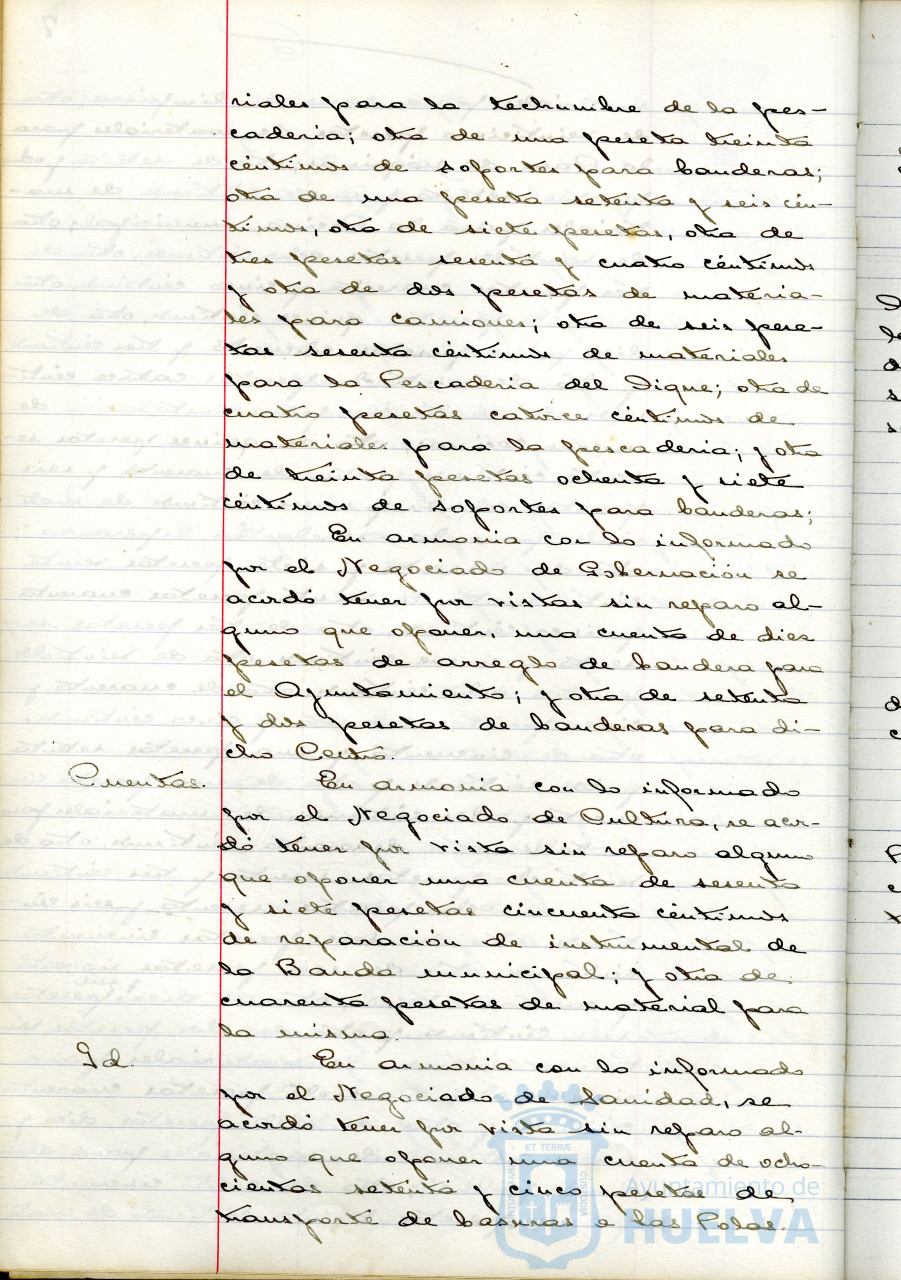 riales para la techumbre de la pes-
cadería; otra de una peseta treinta
céntimos de soportes para banderas;
otra de una peseta setenta y seis cén-
timos, otra de siete pesetas, otra de
tres pesetas sesenta y cuatro céntimos
y otra de dos pesetas de materia-
les para camiones; otra de seis pese-
tas sesenta céntimos de materiales
para la Pescadería del Dique; otra de
cuatro pesetas catorce céntimos de
materiales para la pescadería; y otra
de treinta pesetas ochenta y siete
céntimos de soportes para banderas;
En armonia con lo informado
por el Negociado de Gobernación se
acordó tener por vistas sin reparo al-
guno que oponer, una cuenta de diez
pesetas de arreglo de bandera para
el Ayuntamiento; y otra de setenta
y dos pesetas de banderas para di-
cho Centro.
Cuentas. En armonia con lo informado
por el Negociado de Cultura, se acor-
dó tener por vista sin reparo alguno
que oponer una cuenta de sesenta
y siete pesetas cincuenta céntimos
de reparación de instrumental de
la Banda municipal; y otra de
cuarenta pesetas de material para
la misma.
Id. En armonia con lo informado
por el Negociado de Sanidad, se
acordó tener por vista sin reparo al-
guno que oponer una cuenta de ocho-
cientas setenta y cinco pesetas de
transporte de basuras a las Polas.
ET TERRÆ
Ayuntamiento de
HUELVA